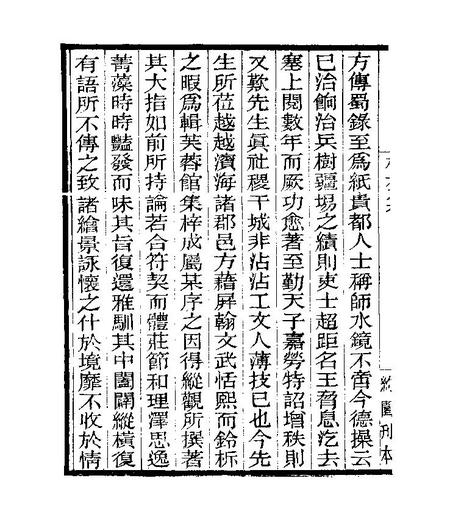 方傳蜀錄至爲紙貴都人士稱師水鏡不啻今德操云
已治餉治兵樹疆埸之績則吏士超距名王脅息迄去
塞上閱數年而厥功愈著至勤天子嘉勞特詔增秩則
又歎先生眞社稷干城非沾沾工文人薄技已也今先
生所莅越越濱海諸郡邑方藉屏翰文武恬熙而鈴柝
之暇爲輯芙蓉館集梓成屬某序之因得縱觀所撰著
其大指如前所持論若合符契而體莊節和理澤思逸
菁藻時時豔發而味其旨復還雅馴其中闔闢縱橫復
有語所不傳之致諸繪景詠懷之什於境靡不收於情
約園刊本